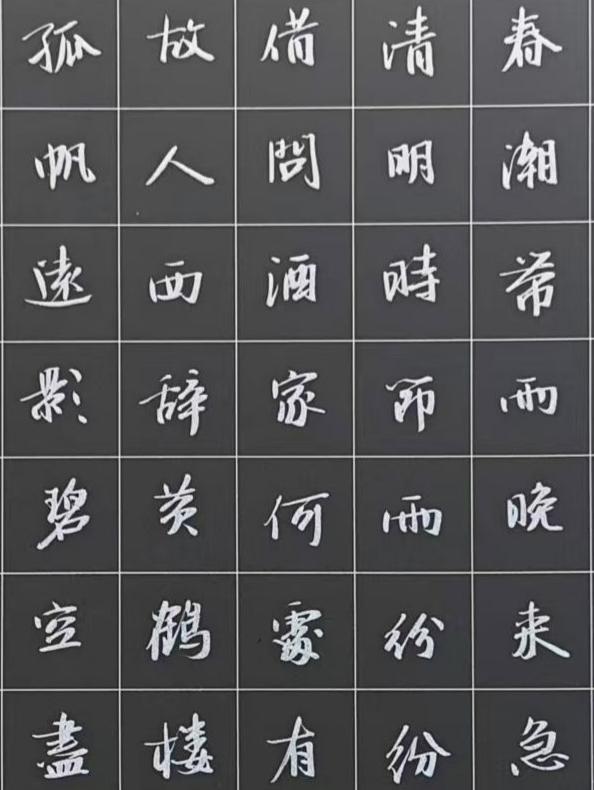 春潮帶雨晚来急
清明時節雨紛紛
借問酒家何處有
故人西辞黄鹤楼
孤帆遠影碧空盡